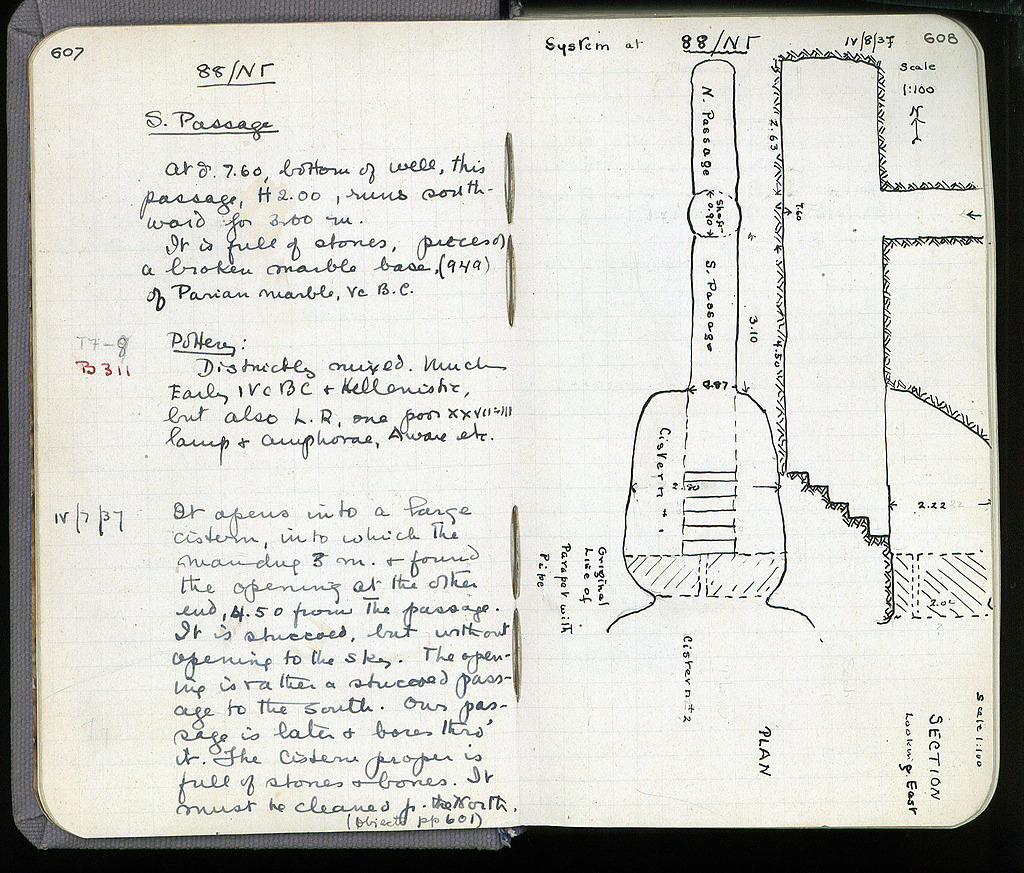 607
88/NΓ
S. Passage
At d. 7.60, bottom of well, this
passage, H 2.00, runs south-
ward for 3.00 m.
It is full of stones, pieces of
a broken marble base, (949)
of Parian marble, Vc B.C.
T7-8
B 311
Pottery:
Districtly mixed. Much
Early IVc BC & Hellenistic,
but also L.R, one poor XXVII-III
lamp & amphorae, A ware etc.
IV/7/37
It opens into a large
cistern, into which the
man dug 3 m. & found
the opening at the other
end, 4.50 from the passage.
It is stuccoed, but without
opening to the sky. The open-
ing is rather a stuccoed pass-
age to the south. Our pas-
sage is later & bores thro'
it. The cistern proper is
full of stones & bones. It
must be cleaned f. the North.
(Objects pp 601)
System at 88/NΓ
IV/8/37
608
Scale
1:100
N
N. Passage
2.63
Shaft
0.90
7.60
S. Passage
3.10
4.50
0.87
Cistern #1
2.80
2.22
Original
Line of
Parapet with
Pipe
Cistern #2
PLAN
SECTION
Looking East
Scale 1:100